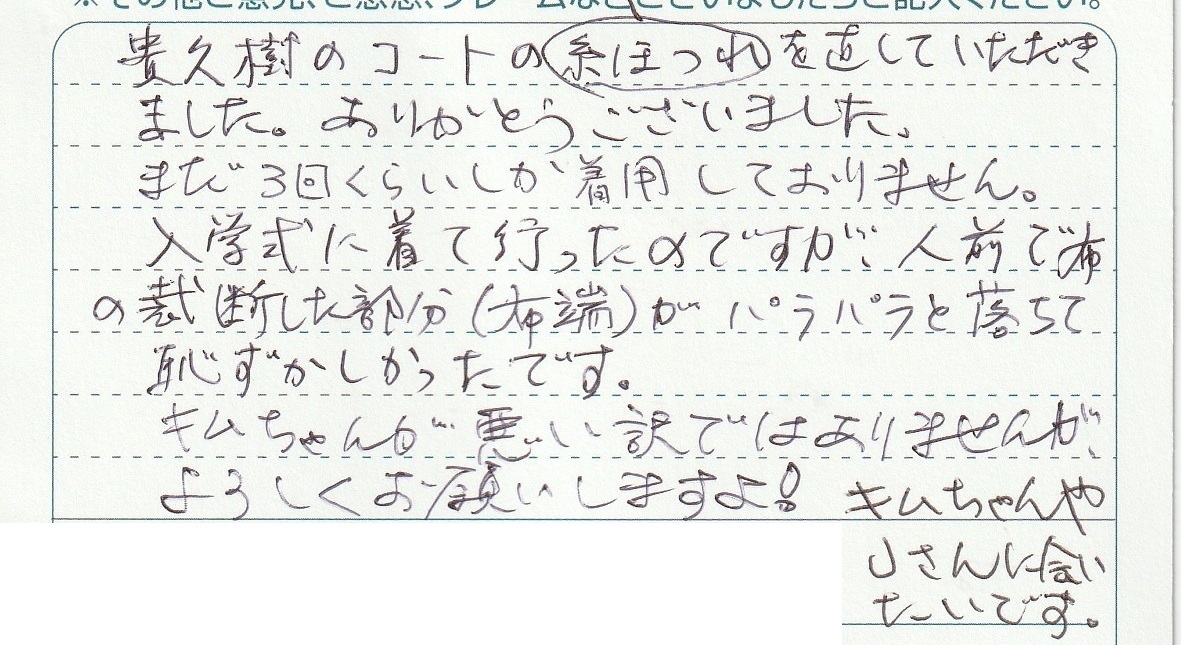 ※その他ご意見、ご感想、クレームなどございましたらご記入ください。
貴久樹のコートの糸ほつれを直していただき
ました。ありがとうございました。
まだ3回くらいしか着用しておりません。
入学式に着て行ったのですが、人前で布
の裁断した部分(布端)がパラパラと落ちて
恥ずかしかったです。
キムちゃんが悪い訳ではありませんが、
よろしくお願いしますよ! キムちゃんや
Jさんに会い
たいです。